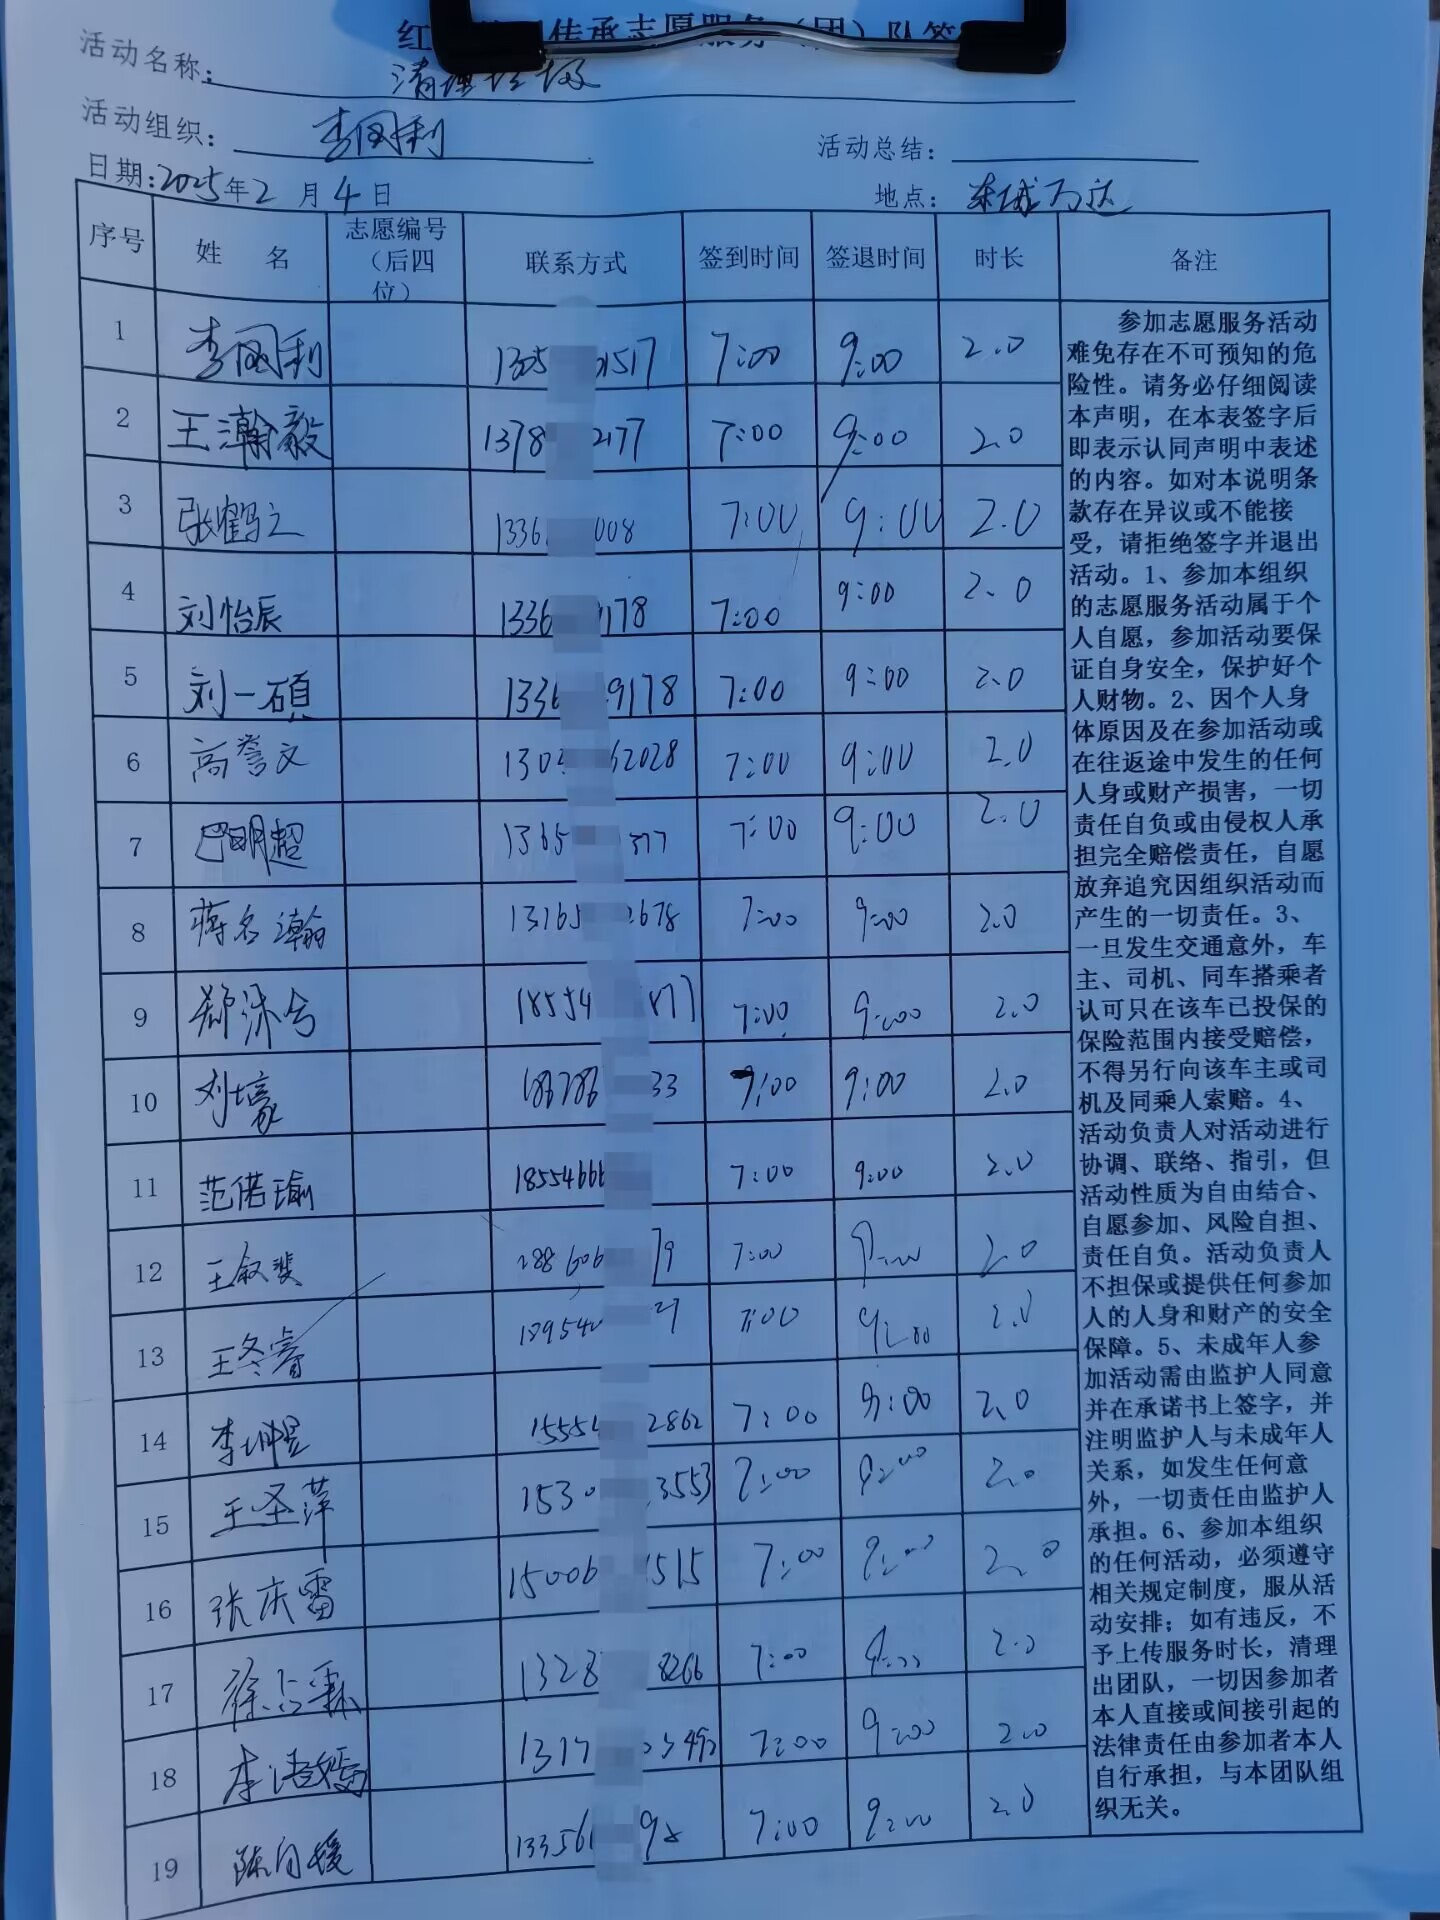 传承志愿服务(团)队签
活动名称: 清理垃圾
活动组织: 李国利
活动总结:
日期:2025年2月4日
地点: 东城万达
序号 姓 名 志愿编号(后四位) 联系方式 签到时间 签退时间 时长 备注
1 李国利 1305 1517 7:00 9:00 2.0
2 王瀚毅 1378 2177 7:00 9:00 2.0
3 张鹤之 1336 008 7:00 9:00 2.0
4 刘怡辰 1336 178 7:00 9:00 2.0
5 刘一硕 133 9178 7:00 9:00 2.0
6 高誉文 130 62028 7:00 9:00 2.0
7 巴明超 1365 377 7:00 9:00 2.0
8 蒋名瀚 13765 2678 7:00 9:00 2.0
9 郑 18554 877 7:00 9:00 2.0
10 刘壕 186786 33 7:00 9:00 2.0
11 范偌瑜 18554666 7:00 9:00 2.0
12 王叙斐 188606 79 7:00 9:00 2.0
13 王冬睿 189540 27 7:00 9:00 2.0
14 李 1555 2862 7:00 9:00 2.0
15 王圣萍 1530 3553 7:00 9:00 2.0
16 张庆雷 15006 1515 7:00 9:00 2.0
17 徐 霖 1328 8266 7:00 9:00 2.0
18 李浩嫣 1317 7:00 9:00 2.0
19 陈 媛 13356 98 7:00 9:00 2.0
参加志愿服务活动
难免存在不可预知的危
险性。请务必仔细阅读
本声明,在本表签字后
即表示认同声明中表述
的内容。如对本说明条
款存在异议或不能接
受,请拒绝签字并退出
活动。1、参加本组织
的志愿服务活动属于个
人自愿,参加活动要保
证自身安全,保护好个
人财物。2、因个人身
体原因及在参加活动或
在往返途中发生的任何
人身或财产损害,一切
责任自负或由侵权人承
担完全赔偿责任,自愿
放弃追究因组织活动而
产生的一切责任。3、
一旦发生交通意外,车
主、司机、同车搭乘者
认可只在该车已投保的
保险范围内接受赔偿,
不得另行向该车主或司
机及同乘人索赔。4、
活动负责人对活动进行
协调、联络、指引,但
活动性质为自由结合、
自愿参加、风险自担、
责任自负。活动负责人
不担保或提供任何参加
人的人身和财产的安全
保障。5、未成年人参
加活动需由监护人同意
并在承诺书上签字,并
注明监护人与未成年人
关系,如发生任何意
外,一切责任由监护人
承担。6、参加本组织
的任何活动,必须遵守
相关规定制度,服从活
动安排;如有违反,不
予上传服务时长,清理
出团队,一切因参加者
本人直接或间接引起的
法律责任由参加者本人
自行承担,与本团队组
织无关。